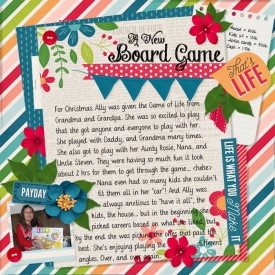 A New
Board Game
That's
LIFE
For Christmas Ally was given the Game of Life from
Grandma and Grandpa. She was so excited to play
that she got anyone and everyone to play with her.
She played with Daddy, and Grandma many times.
She also got to play with her Aunty Rosie, Nana, and
Uncle Steven. They were having so much fun it took
about 2 hrs for them to get through the game... hehe
Nana even had so many kids she couldn't
fit them all in her "car"! And Ally was
always anxious to "have it all",
kids, the house... but in the beginning she
picked careers based on what she liked, but
by the end she was picking the ones that paid the
best. She's enjoying playing the different
angles. Over, and over again.
PAYDAY
LIFE IS WHAT YOU Make IT